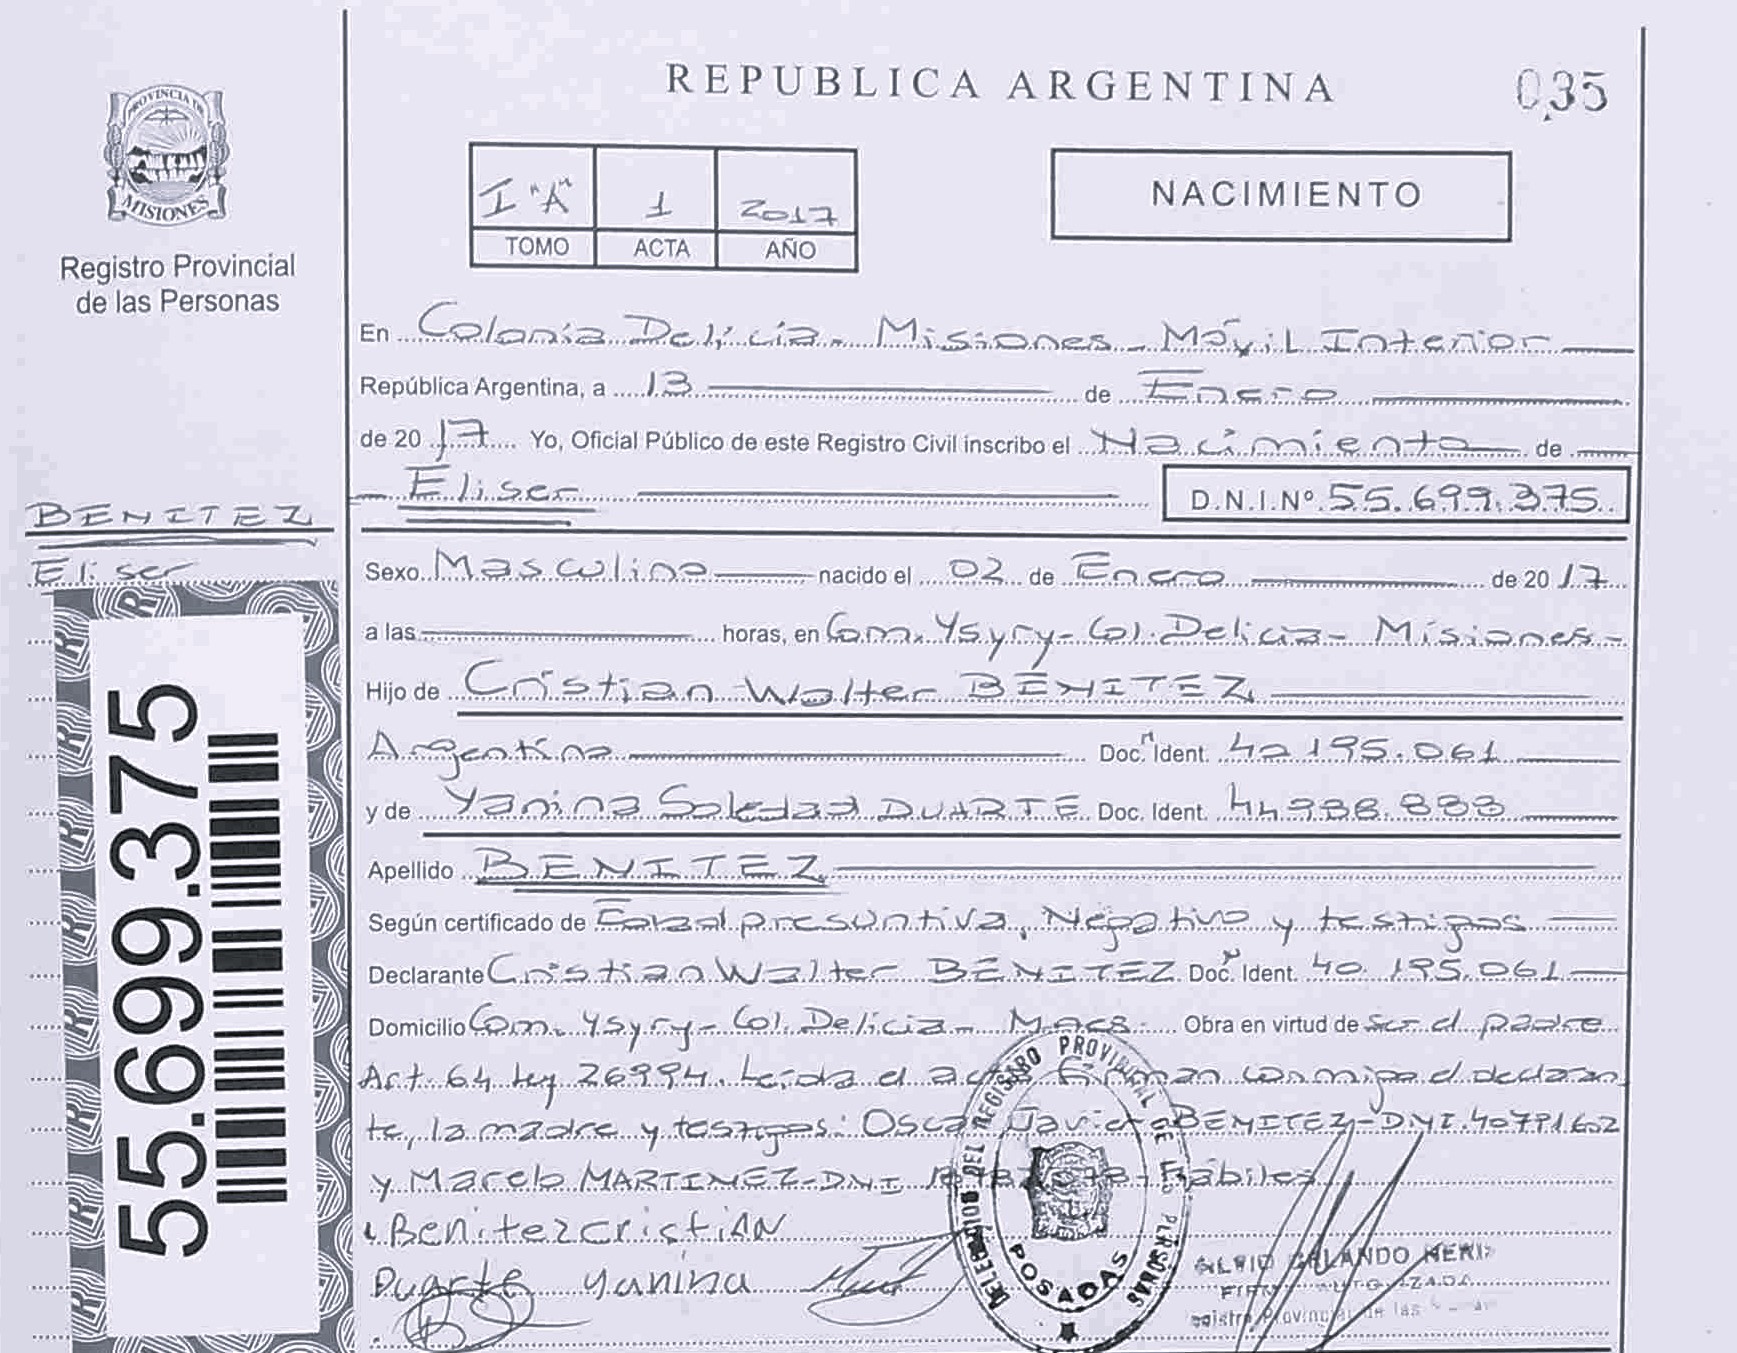 REPUBLICA ARGENTINA
035
PROVINCIA DE
MISIONES
Registro Provincial
de las Personas
I "A" 1 2017
TOMO ACTA AÑO
NACIMIENTO
En Colonia Delicia - Misiones - Móvil Interior
República Argentina, a 13 de Enero
de 2017 Yo, Oficial Público de este Registro Civil inscribo el Nacimiento de
Eliser D.N.I.Nº 55.699.375
BENITEZ
Eliser
55.699.375
Sexo Masculino nacido el 02 de Enero de 2017
a las horas, en Com. Ysyry - Col. Delicia - Misiones -
Hijo de Cristian Walter BENITEZ
Argentina Doc. Ident. 42195.061
y de Yanina Soledad DUARTE Doc. Ident.
Apellido BENITEZ
Según certificado de Edad presuntiva, Negativo y testigos
Declarante Cristian Walter BENITEZ Doc. Ident. 40.195.061
Domicilio Com. Ysyry - Col. Delicia - Mnes. Obra en virtud de ser el padre
Art. 64 Ley 26994. Leída el acta Firman conmigo el declaran
te, la madre y testigos: Oscar Javier BENITEZ - DNI. 40791602
y Marcelo MARTINEZ - DNI - Hábiles
Benitez cristiAN
Duarte yanina
DELEGACION DEL REGISTRO PROVINCIAL DE LAS PERSONAS
POSADAS
ORLANDO
Registro Provincial de las